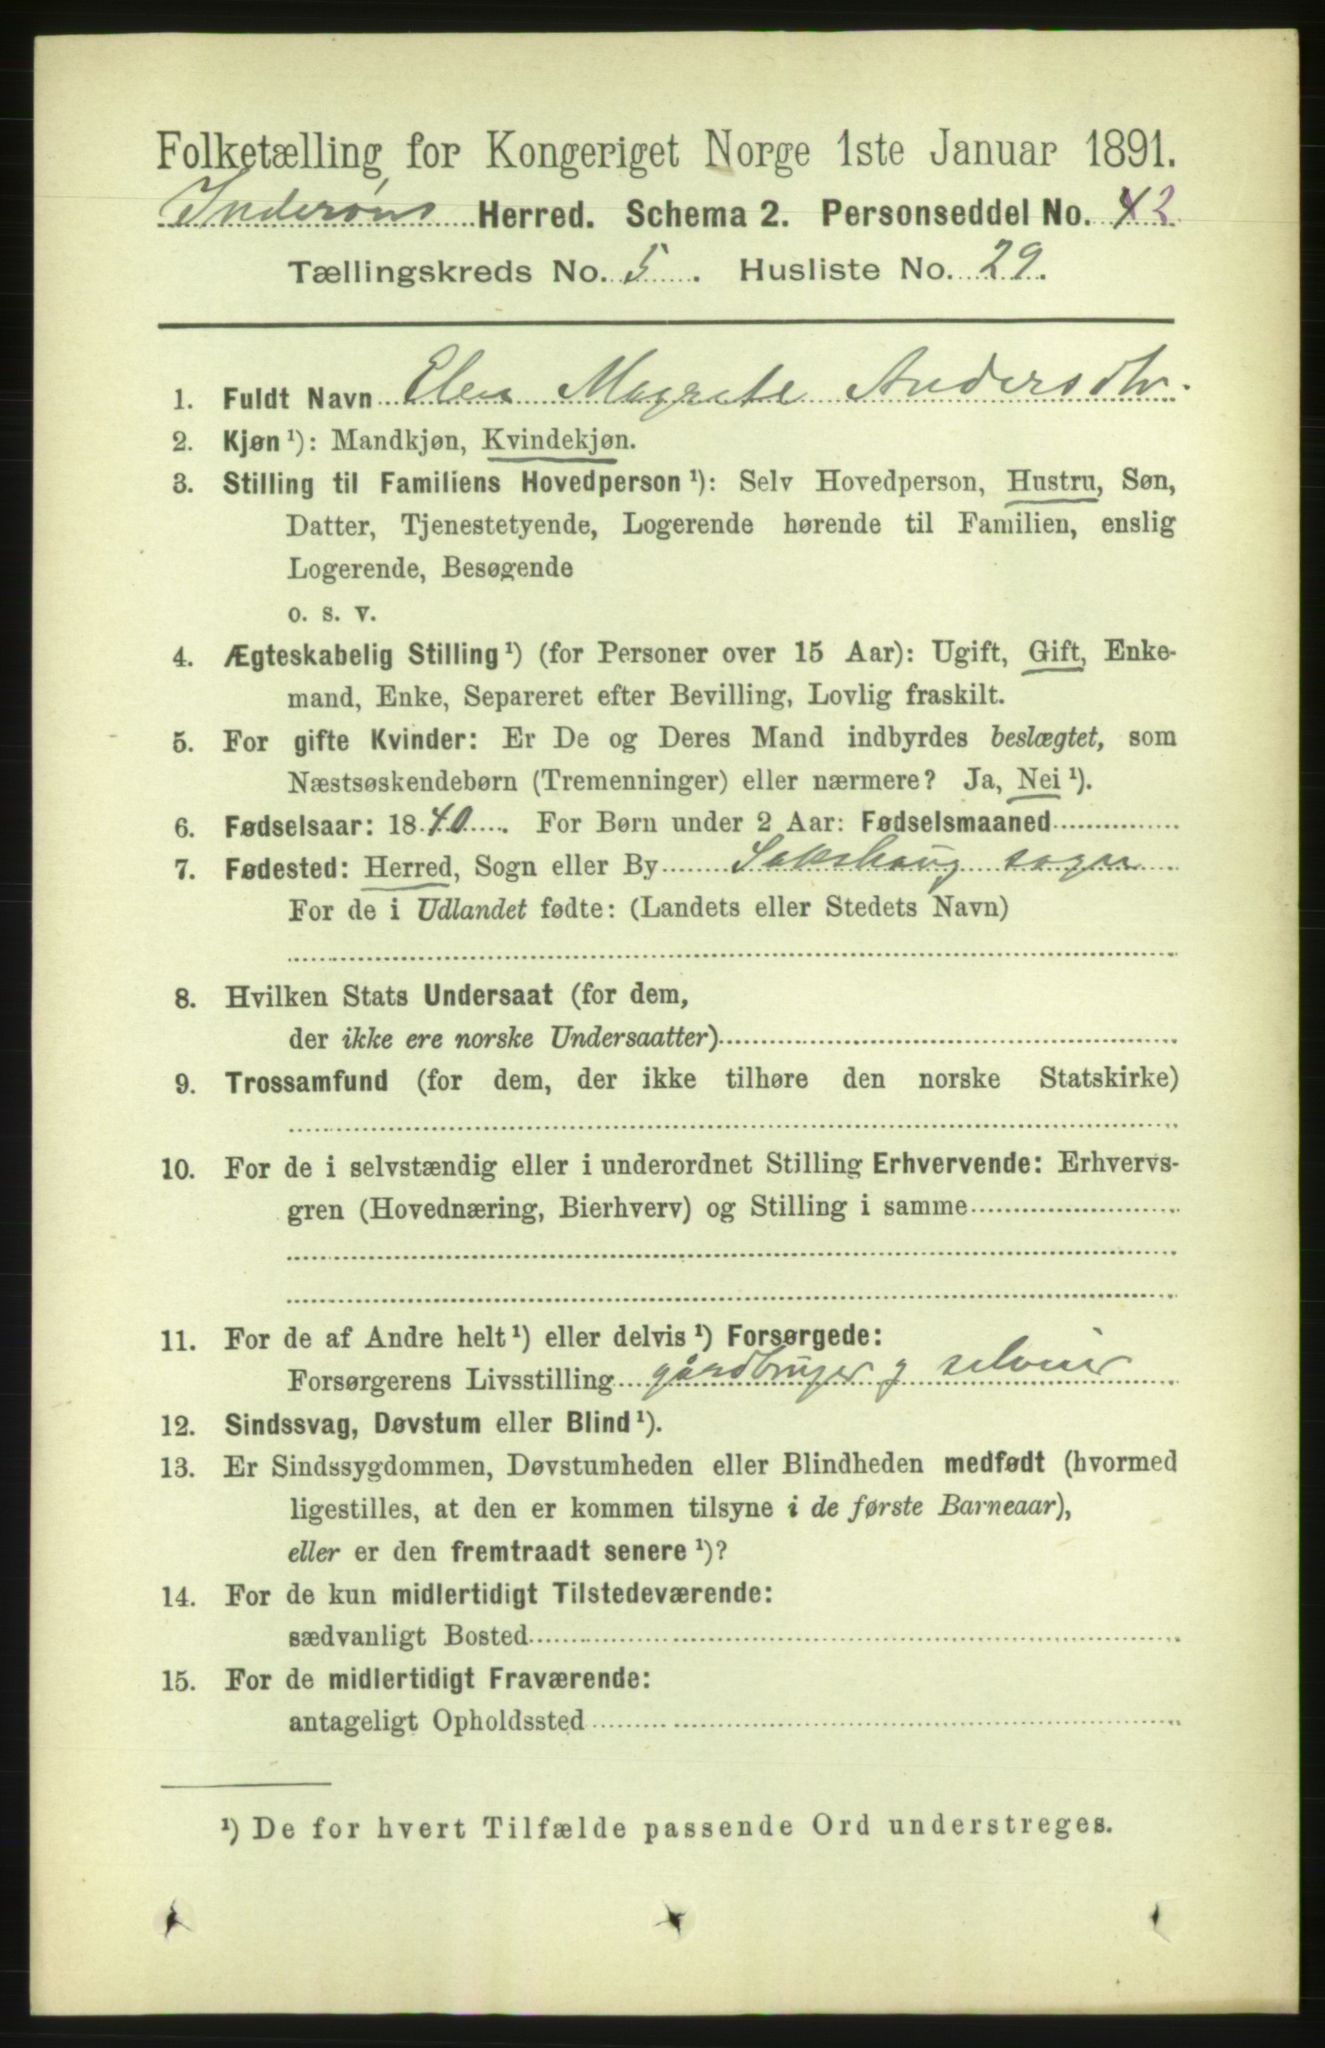 Folketælling for Kongeriget Norge 1ste Januar 1891.
Inderøens Herred. Schema 2. Personseddel No. 42
Tællingskreds No. 5. Husliste No. 29.
1. Fuldt Navn Elen Magrete Andersdtr.
2. Kjøn ¹): Mandkjøn, Kvindekjøn.
3. Stilling til Familiens Hovedperson ¹): Selv Hovedperson, Hustru, Søn,
Datter, Tjenestetyende, Logerende hørende til Familien, enslig
Logerende, Besøgende
o. s. v.
4. Ægteskabelig Stilling ¹) (for Personer over 15 Aar): Ugift, Gift, Enke-
mand, Enke, Separeret efter Bevilling, Lovlig fraskilt.
5. For gifte Kvinder: Er De og Deres Mand indbyrdes beslægtet, som
Næstsøskendebørn (Tremenninger) eller nærmere? Ja, Nei ¹).
6. Fødselsaar: 1840. For Børn under 2 Aar: Fødselsmaaned
7. Fødested: Herred, Sogn eller By Sakshaug sogn
For de i Udlandet fødte: (Landets eller Stedets Navn)
8. Hvilken Stats Undersaat (for dem,
der ikke ere norske Undersaatter)
9. Trossamfund (for dem, der ikke tilhøre den norske Statskirke)
10. For de i selvstændig eller i underordnet Stilling Erhvervende: Erhvervs-
gren (Hovednæring, Bierhverv) og Stilling i samme
11. For de af Andre helt ¹) eller delvis ¹) Forsørgede:
Forsørgerens Livsstilling gårdbruger g selveier
12. Sindssvag, Døvstum eller Blind ¹).
13. Er Sindssygdommen, Døvstumheden eller Blindheden medfødt (hvormed
ligestilles, at den er kommen tilsyne i de første Barneaar),
eller er den fremtraadt senere ¹)?
14. For de kun midlertidigt Tilstedeværende:
sædvanligt Bosted
15. For de midlertidigt Fraværende:
antageligt Opholdssted
¹) De for hvert Tilfælde passende Ord understreges.